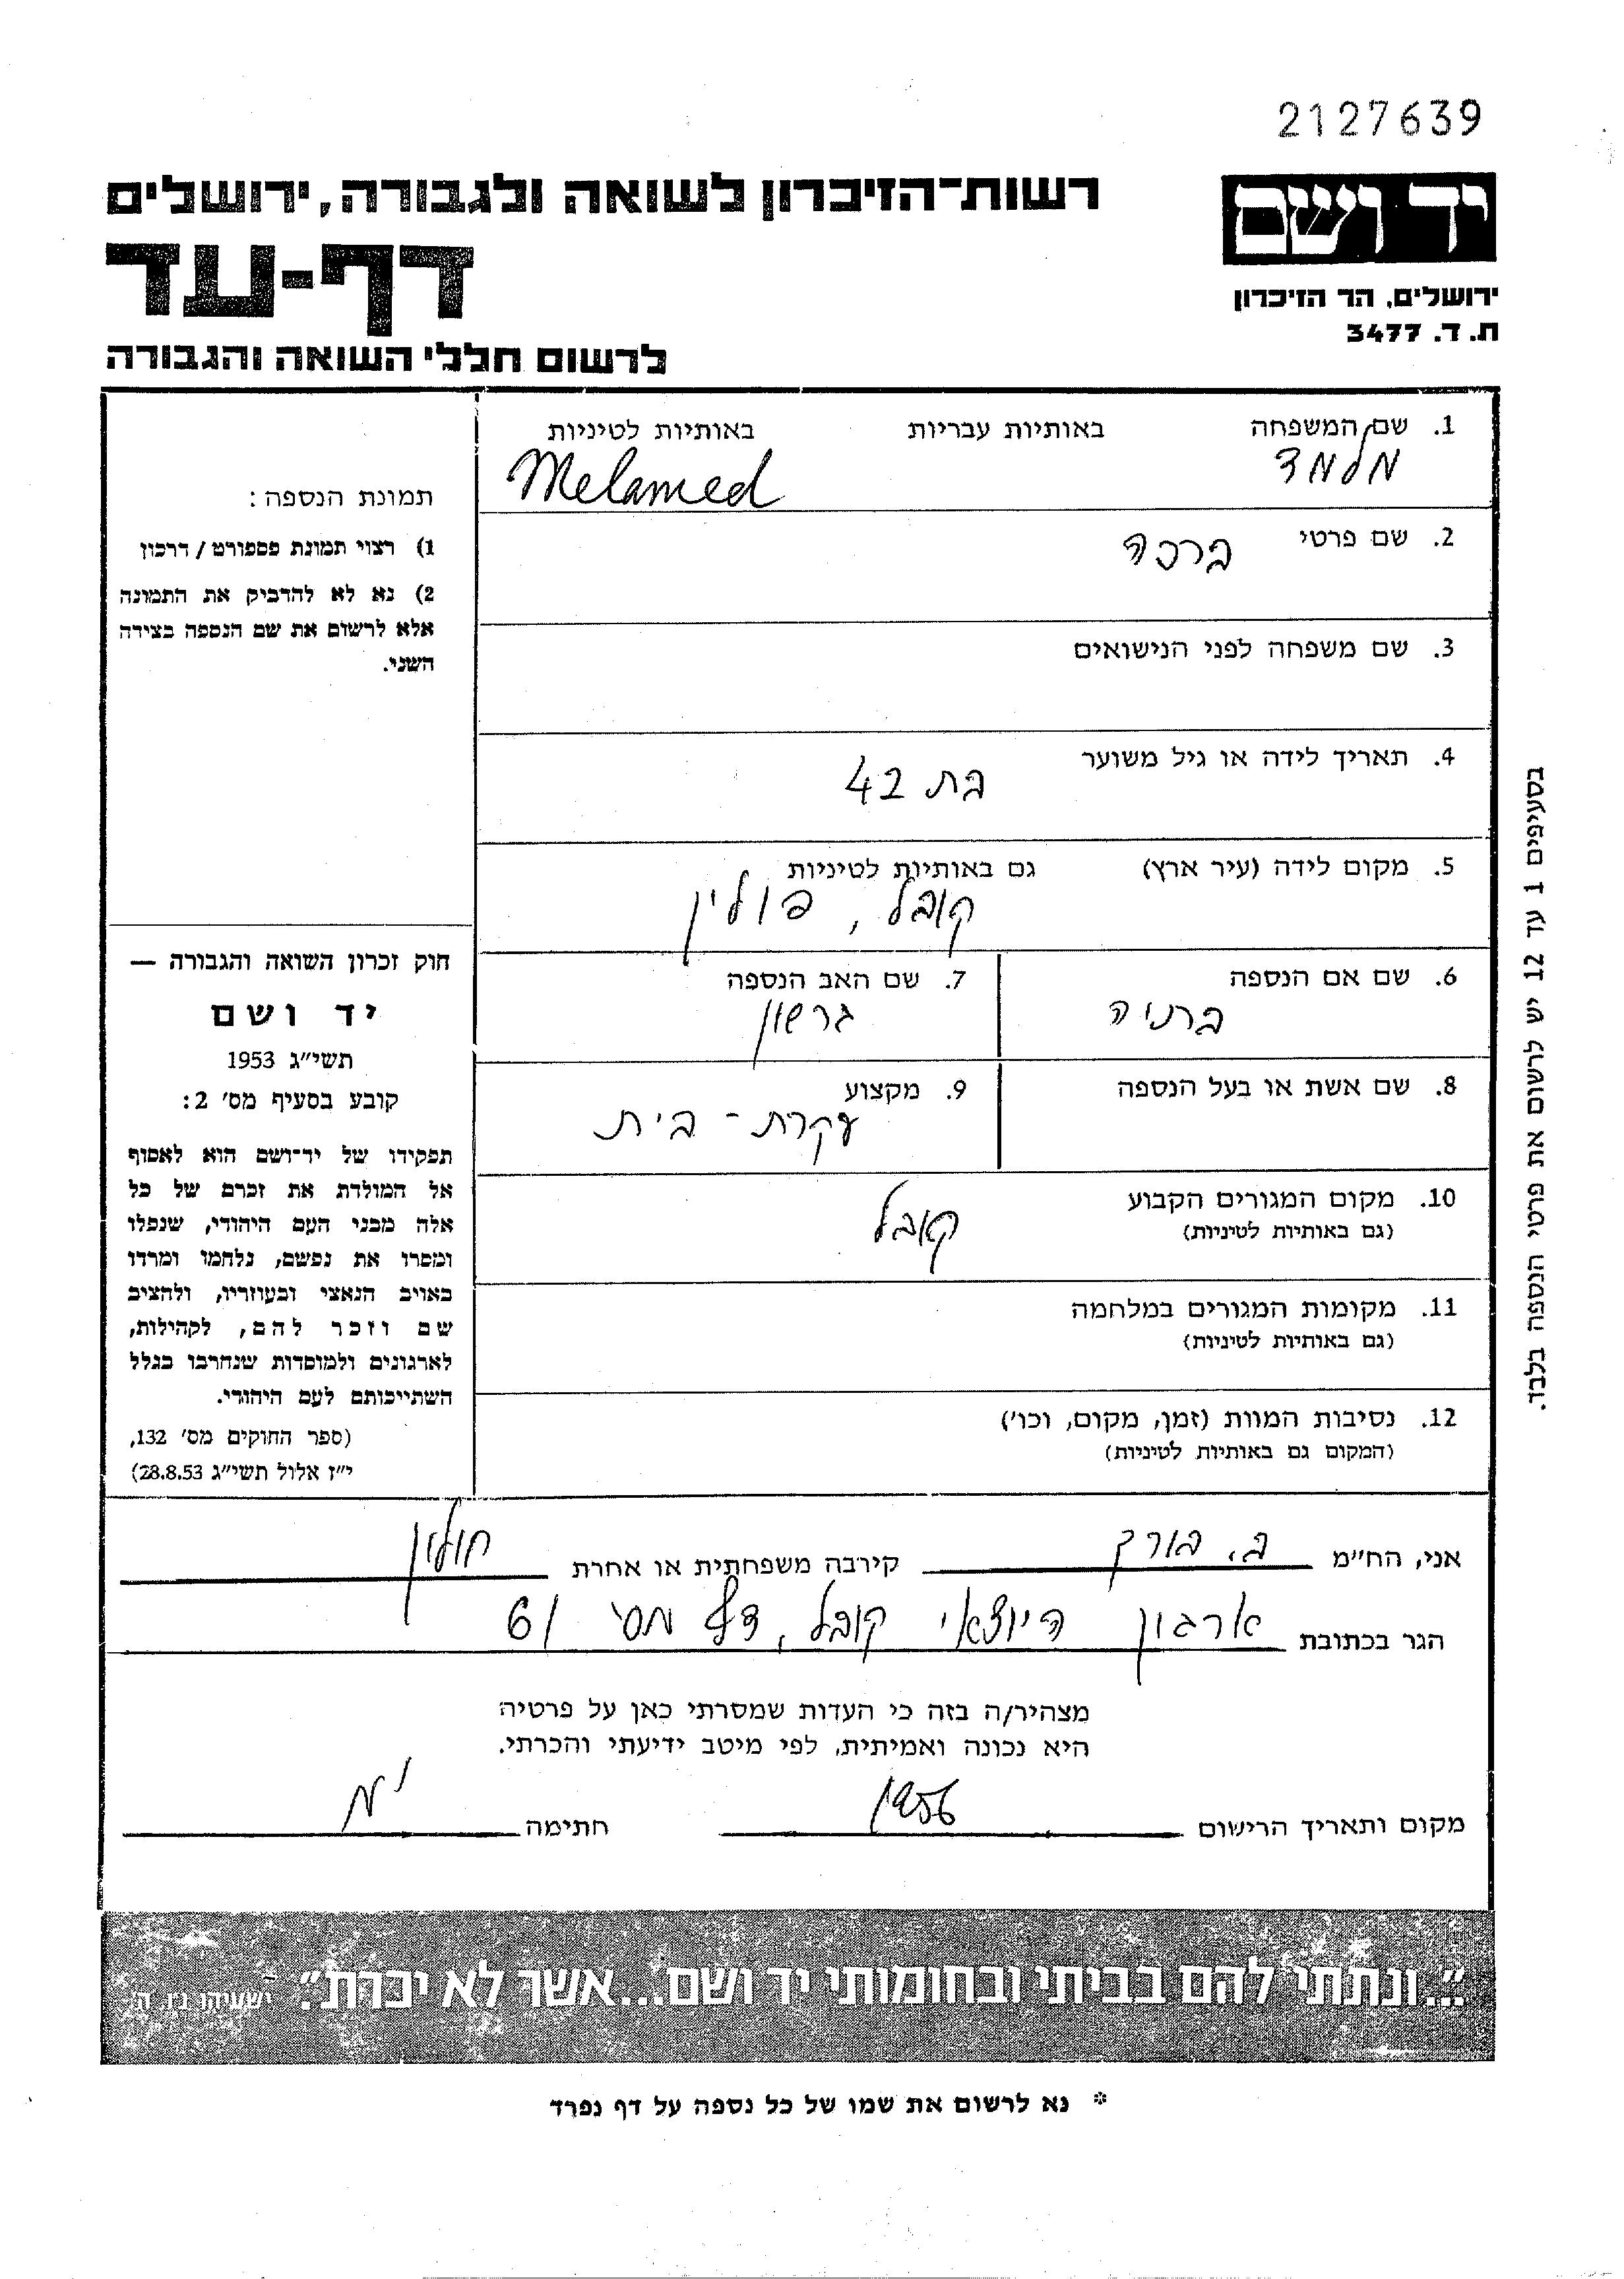 2127639
יד ושם
ירושלים, הר הזיכרון
ת. ד. 3477
רשות-הזיכרון לשואה ולגבורה, ירושלים
דף-עד
לרשום חללי השואה והגבורה
1. שם המשפחה באותיות עבריות באותיות לטיניות
מלמד Melamed
2. שם פרטי ברכה
3. שם משפחה לפני הנישואים
4. תאריך לידה או גיל משוער
בת 42
5. מקום לידה (עיר ארץ) גם באותיות לטיניות
קובל, פולין
6. שם אם הנספה 7. שם האב הנספה
ברניה גרשון
8. שם אשת או בעל הנספה 9. מקצוע
עקרת-בית
10. מקום המגורים הקבוע
(גם באותיות לטיניות)
קובל
11. מקומות המגורים במלחמה
(גם באותיות לטיניות)
12. נסיבות המוות (זמן, מקום, וכו')
(המקום גם באותיות לטיניות)
תמונת הנספה:
1) רצוי תמונת פספורט/דרכון
2) נא לא להדביק את התמונה
אלא לרשום את שם הנספה בצידה
השני.
חוק זכרון השואה והגבורה —
יד ושם
תשי״ג 1953
קובע בסעיף מס׳ 2:
תפקידו של יד־ושם הוא לאסוף
אל המולדת את זכרם של כל
אלה מבני העם היהודי, שנפלו
ומסרו את נפשם, נלחמו ומרדו
באויב הנאצי ובעוזריו, ולהציב
שם וזכר להם, לקהילות,
לארגונים ולמוסדות שנחרבו בגלל
השתייכותם לעם היהודי.
(ספר החוקים מס׳ 132,
י״ז אלול תשי״ג 28.8.53)
בסעיפים 1 עד 12 יש לרשום את פרטי הנספה בלבד.
אני, הח״מ ב. בורך קירבה משפחתית או אחרת חולון
הגר בכתובת ארגון היוצאי קובל, דף מס׳ 61
מצהיר/ה בזה כי העדות שמסרתי כאן על פרטיה
היא נכונה ואמיתית, לפי מיטב ידיעתי והכרתי.
מקום ותאריך הרישום 1956 חתימה
״...ונתתי להם בביתי ובחומותי יד ושם...אשר לא יכרת״. ישעיהו נ״ו, ה׳.
* נא לרשום את שמו של כל נספה על דף נפרד